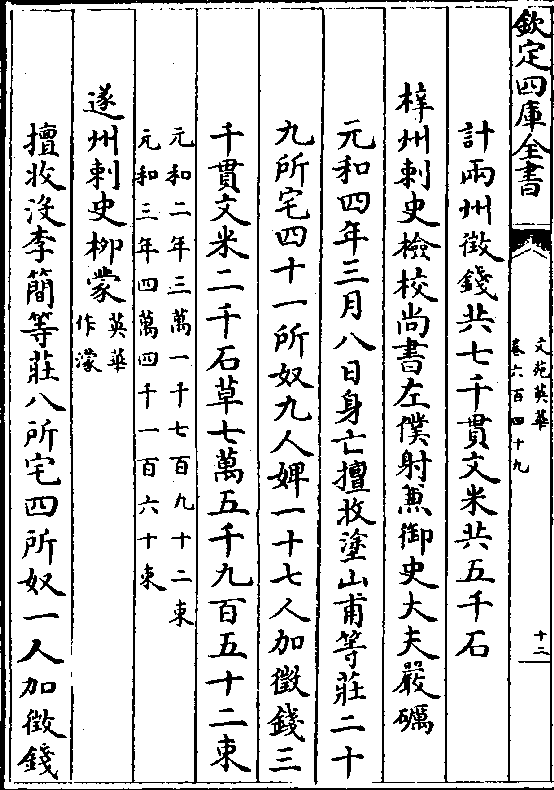 欽定四庫全書
文苑英華
卷六百四十九
十二
計兩州徵錢共七千貫文米共五千石
梓州刺史檢校尚書左僕射兼御史大夫嚴礪
元和四年三月八日身亡擅收塗山甫等莊二十
九所宅四十一所奴九人婢一十七人加徵錢三
千貫文米二千石草七萬五千九百五十二束
元和二年三萬一千七百九十二束
元和三年四萬四千一百六十束
遂州刺史柳蒙
英華
作濛
擅收沒李簡等莊八所宅四所奴一人加徵錢